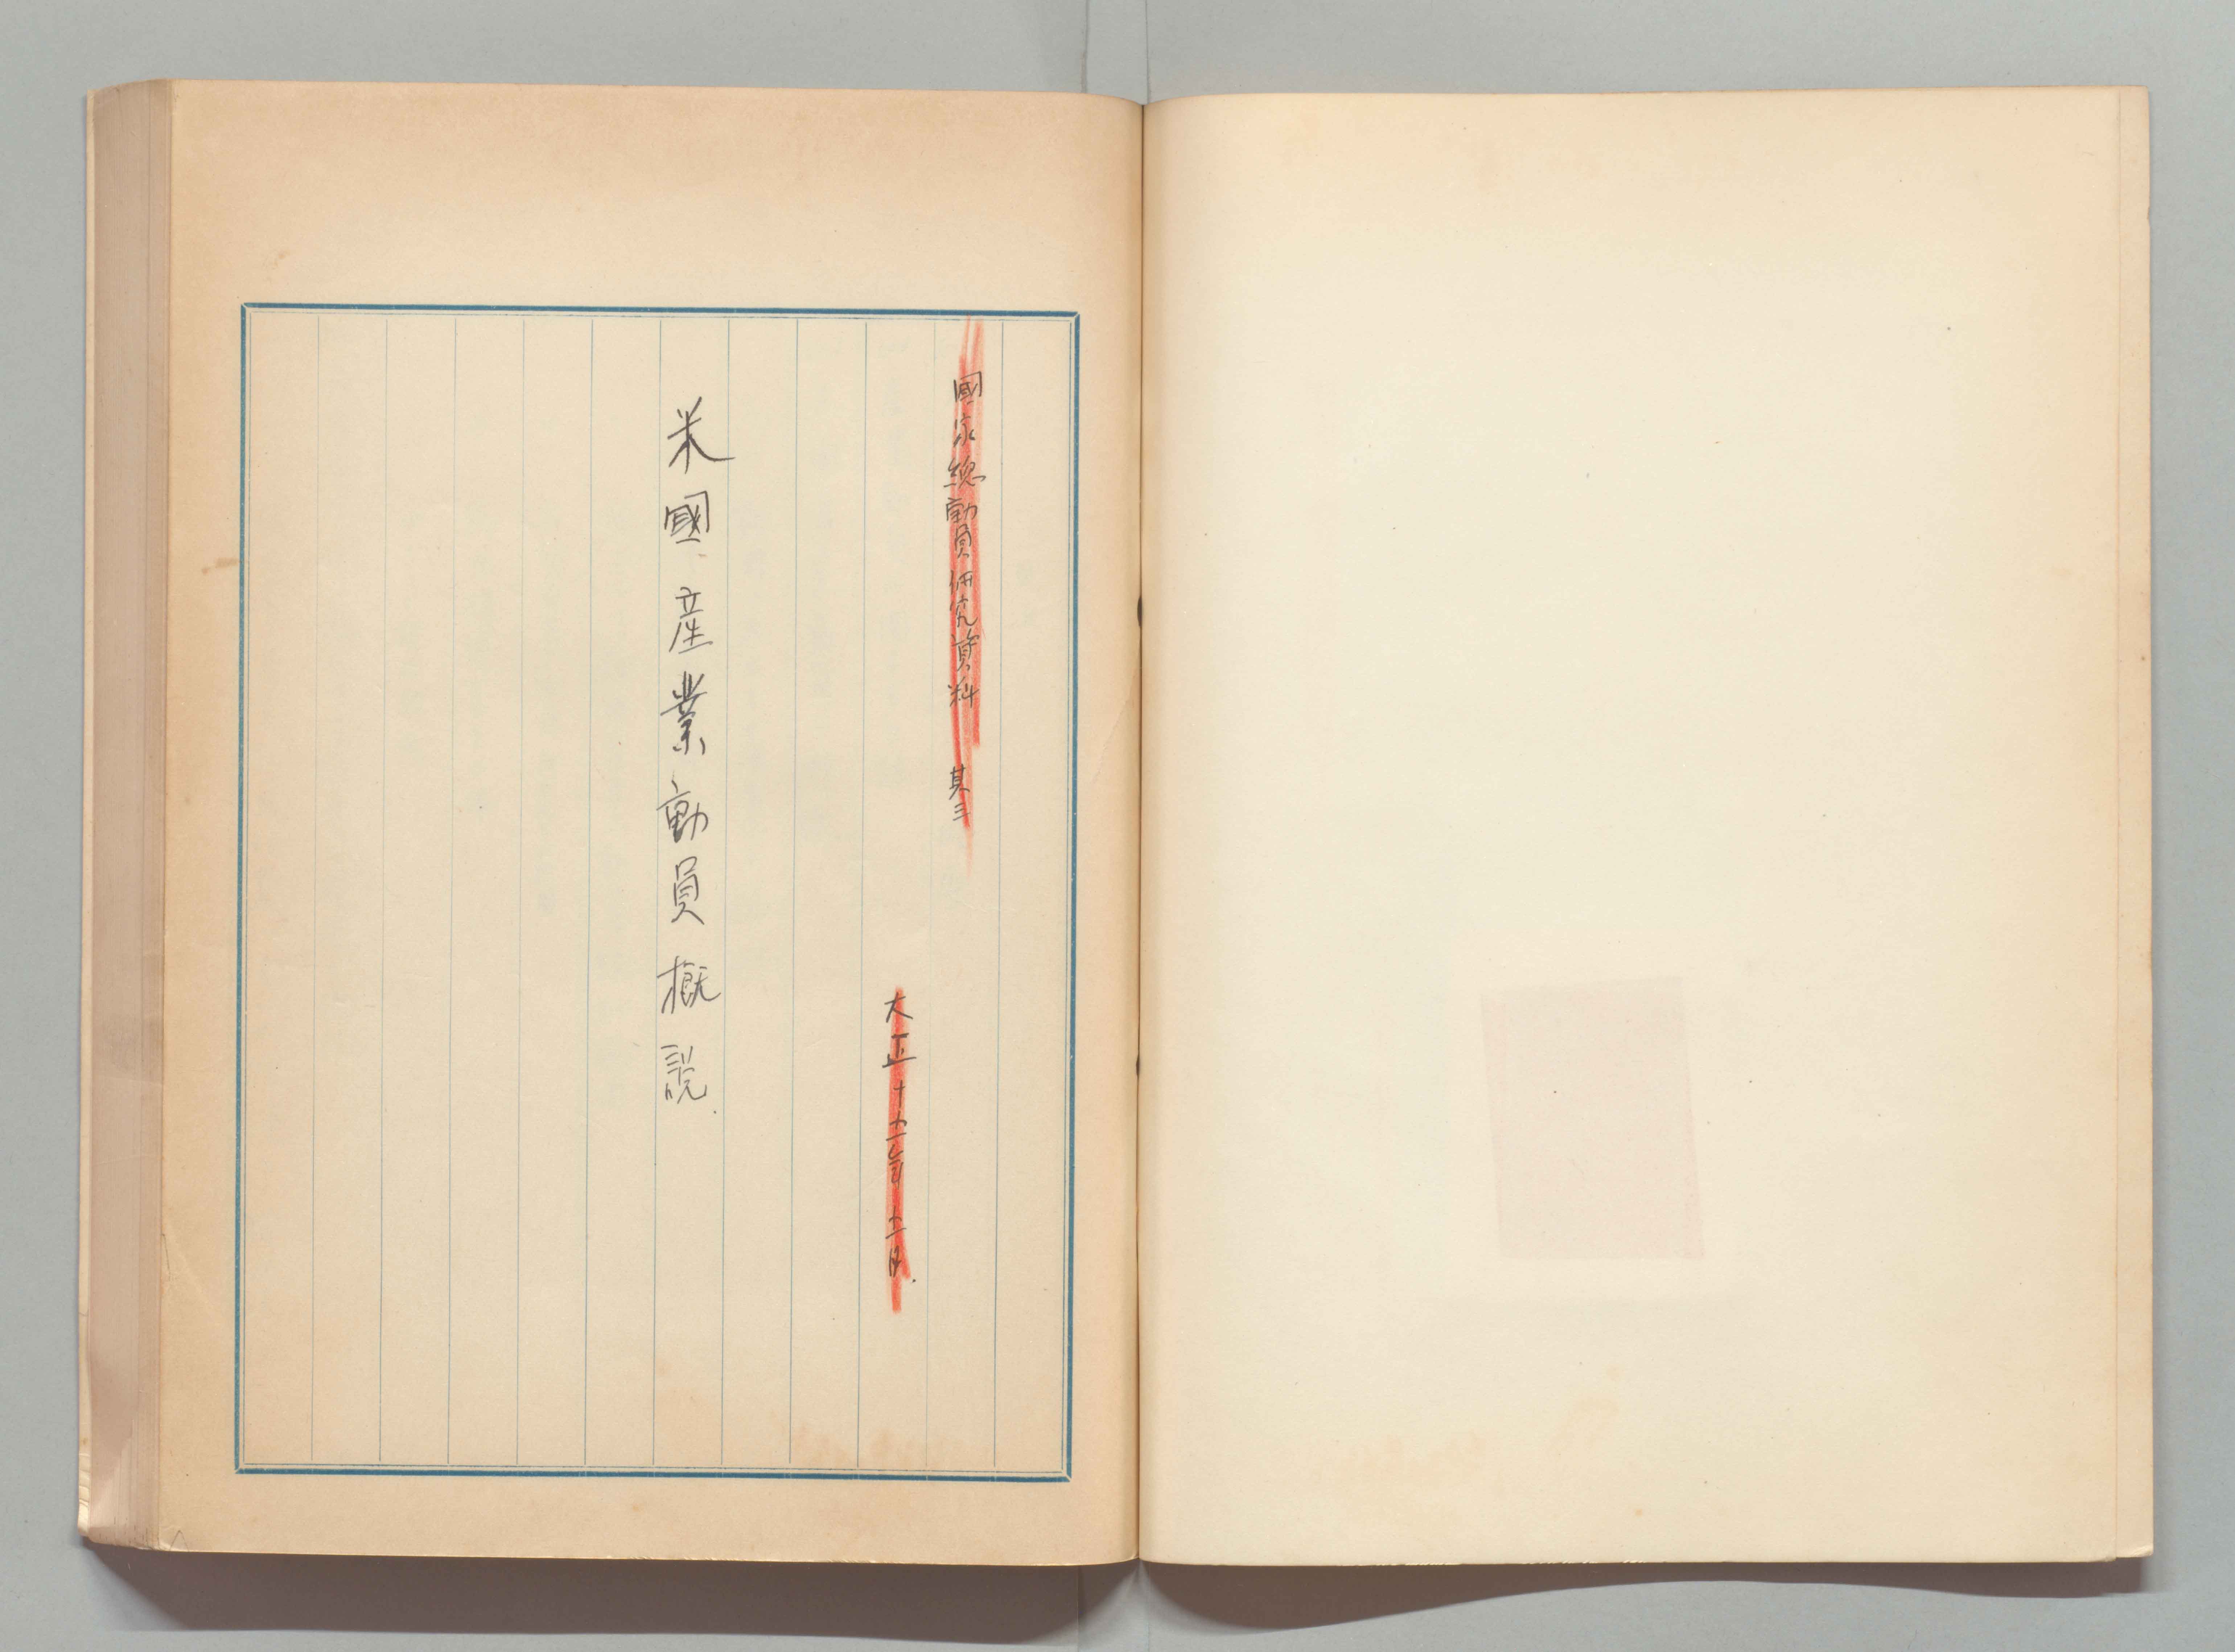 國家總動員研究資料 其三
大正十五年十一月.
米國産業動員概説.